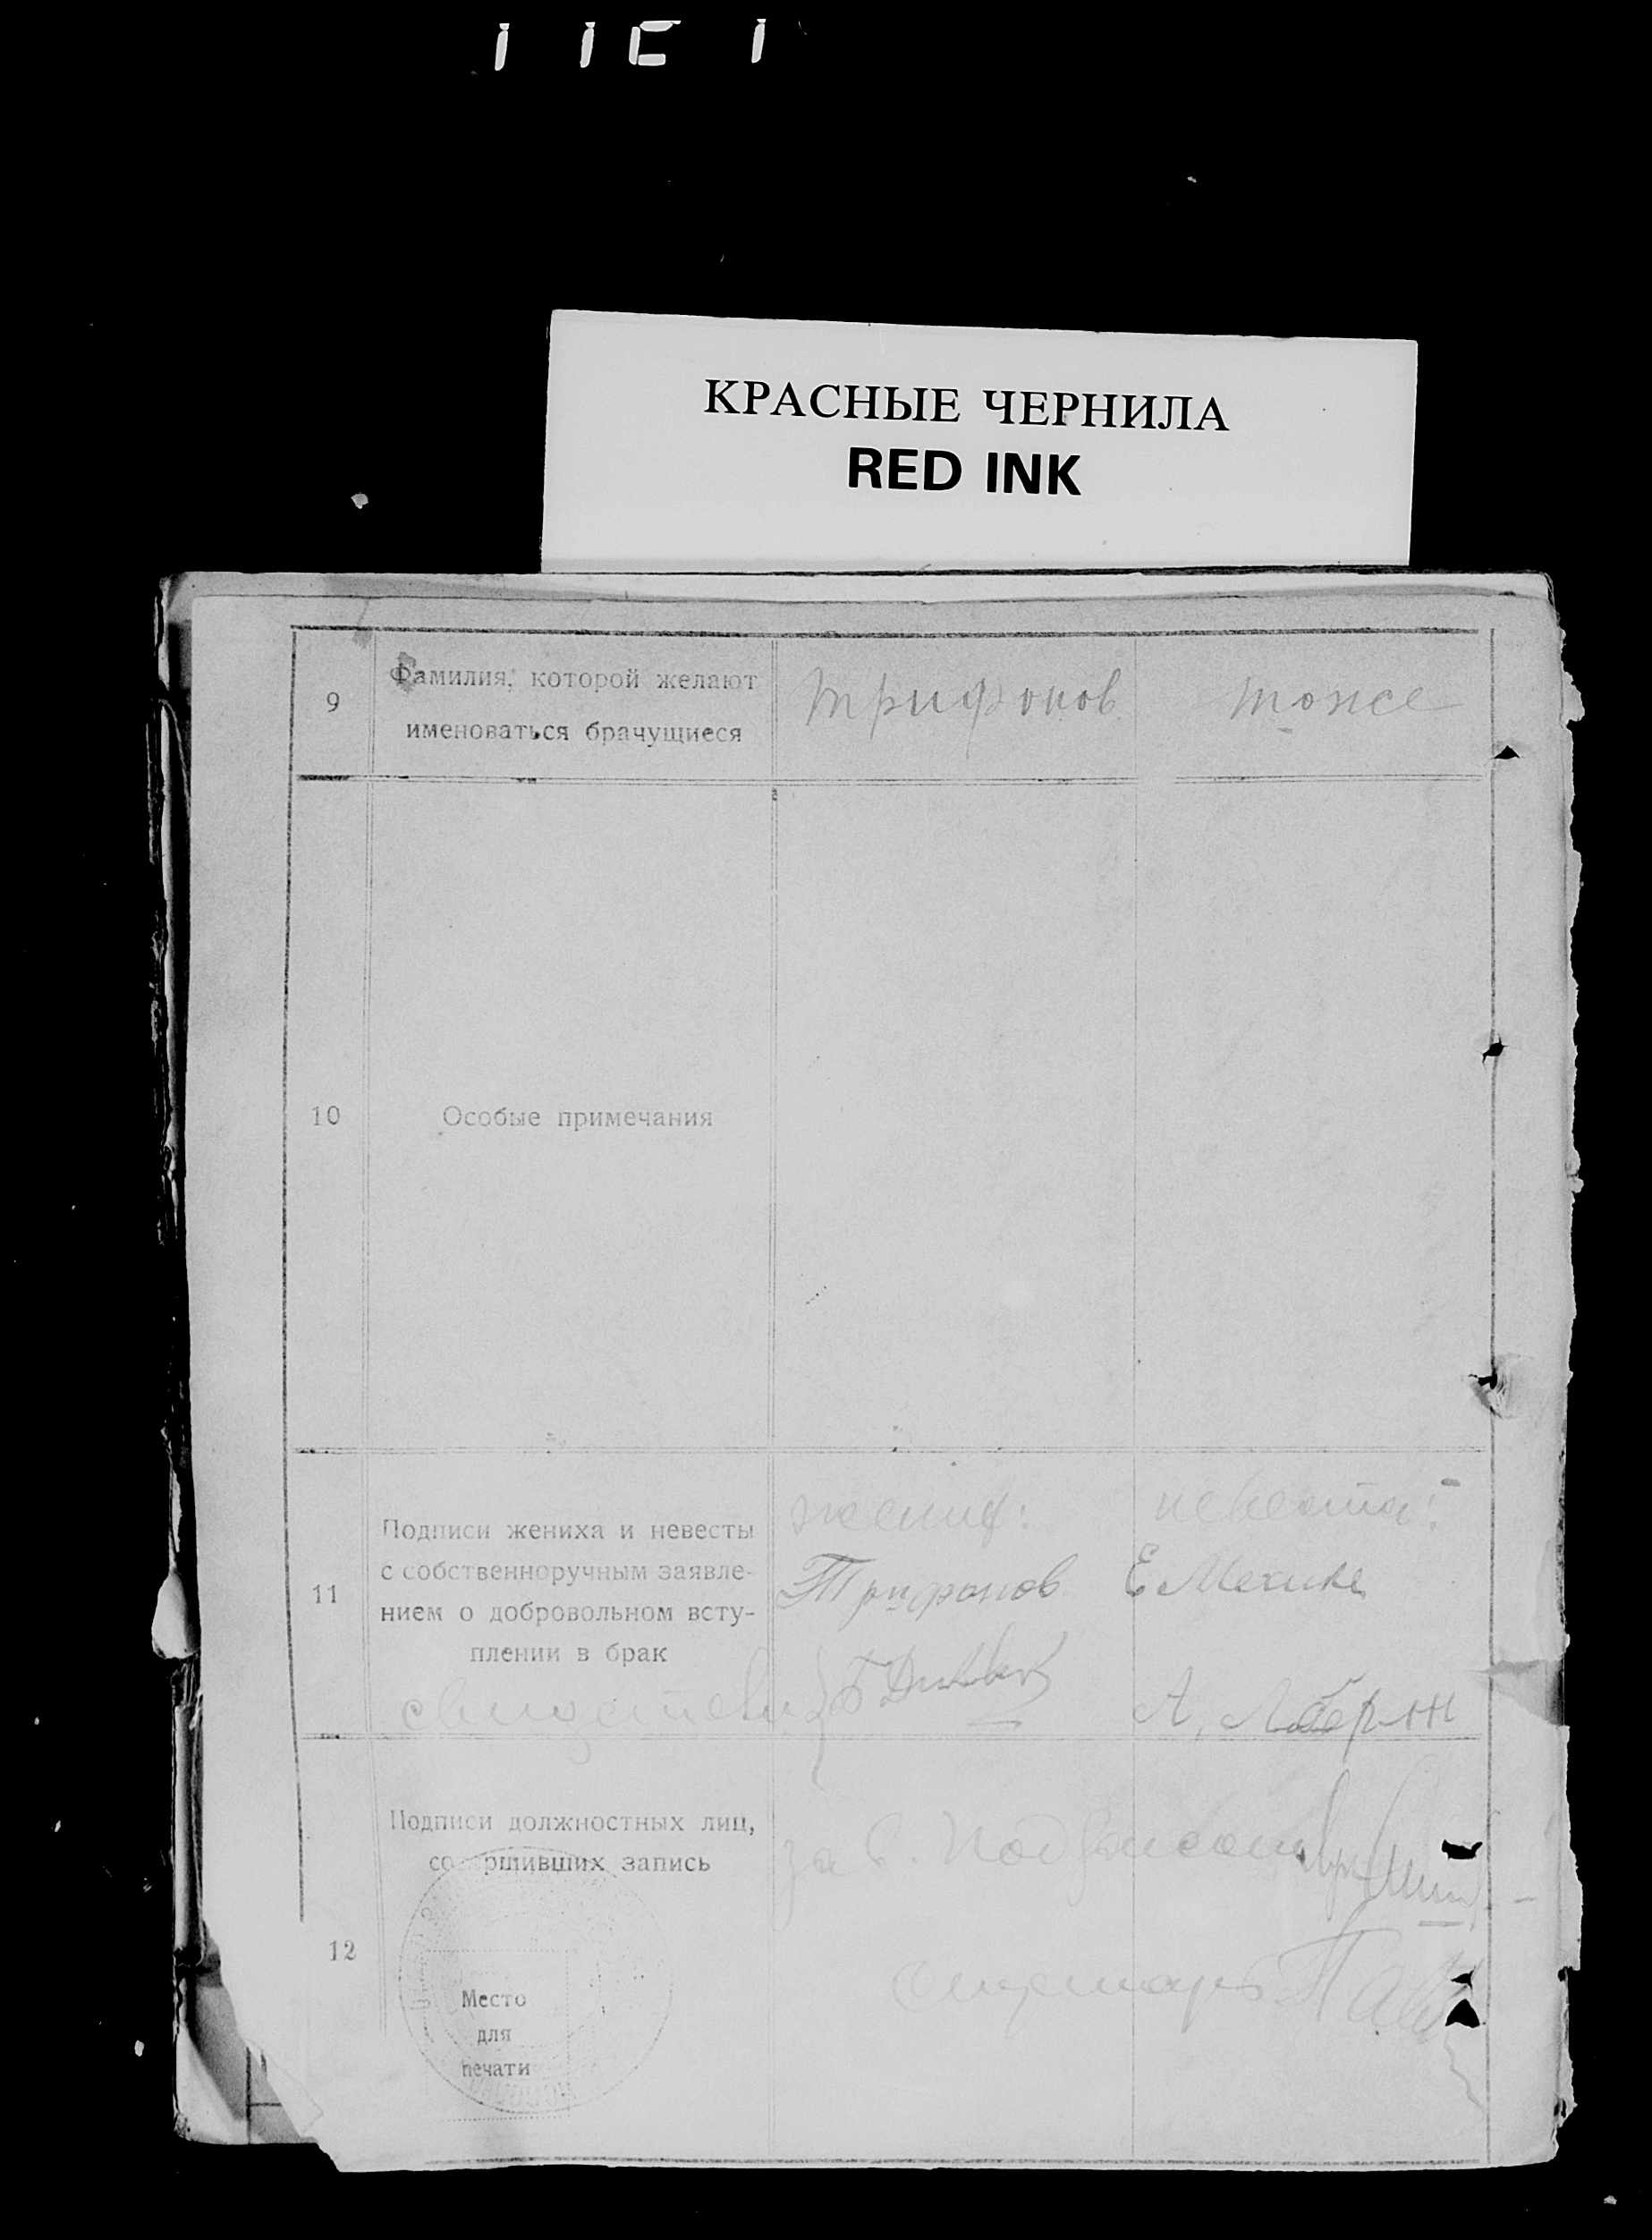 КРАСНЫЕ ЧЕРНИЛА
RED INK
9
Фамилия, которой желают
именоваться брачущиеся
Трифонов
тоже
10
Особые примечания
11
Подписи жениха и невесты
с собственноручным заявле-
нием о добровольном всту-
плении в брак
жених:
невеста:
Трифонов
Е
свидетели
А.
12
Подписи должностных лиц,
совершивших запись
зав.
Место
для
печати